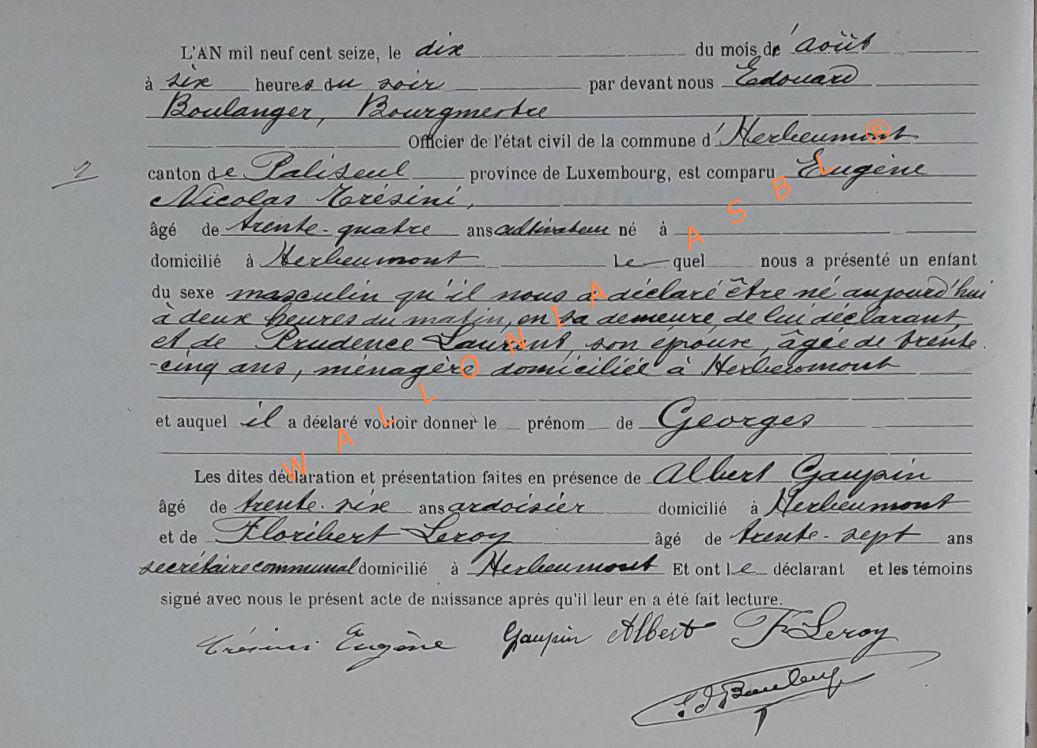 L'AN mil neuf cent seize, le dix du mois d'août
à six heures du soir par devant nous Edouard
Boulanger, Bourgmestre
Officier de l'état civil de la commune d'Herbeumont
2
canton de Paliseul province de Luxembourg, est comparu Eugène
Nicolas Trésini,
âgé de trente-quatre ans cultivateur né à
domicilié à Herbeumont lequel nous a présenté un enfant
du sexe masculin qu'il nous a déclaré être né aujourd'hui
à deux heures du matin, en sa demeure, de lui déclarant
et de Prudence Laurent, son épouse, âgée de trente-
-cinq ans, ménagère domiciliée à Herbeumont
et auquel il a déclaré vouloir donner le prénom de Georges
Les dites déclaration et présentation faites en présence de Albert Gaupin
âgé de trente-six ans ardoisier domicilié à Herbeumont
et de Floribert Leroy âgé de trente-sept ans
secrétaire communal domicilié à Herbeumont Et ont le déclarant et les témoins
signé avec nous le présent acte de naissance après qu'il leur en a été fait lecture.
Trésini Eugène Gaupin Albert F Leroy
Ed Boulanger
WALLONIA ASBL ®